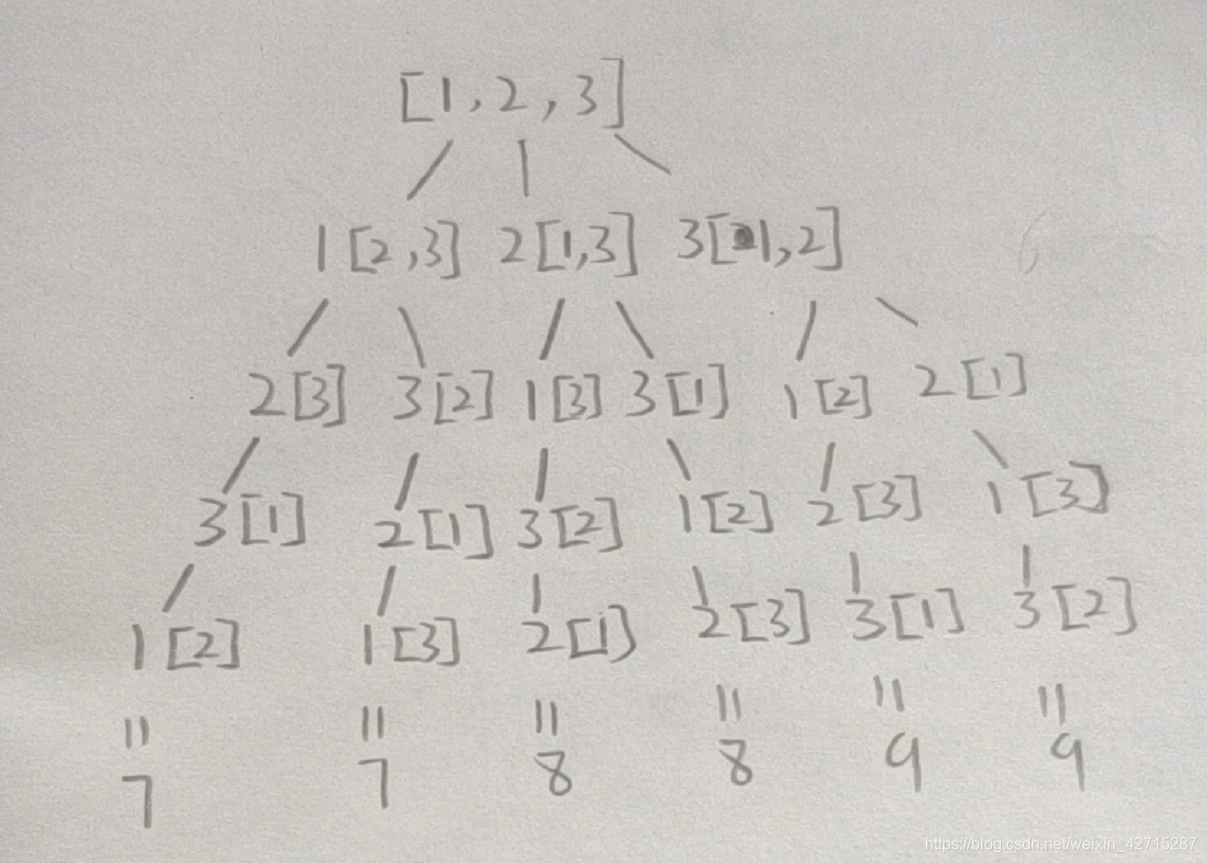 [1,2,3]
1[2,3] 2[1,3] 3[1,2]
2[3] 3[2] 1[3] 3[1] 1[2] 2[1]
3[1] 2[1] 3[2] 1[2] 2[3] 1[3]
1[2] 1[3] 2[1] 2[3] 3[1] 3[2]
= = = = = =
7 7 8 8 9 9
https://blog.csdn.net/weixin_42715287